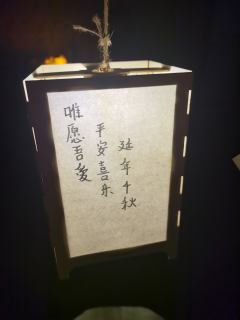 唯愿吾愛
平安喜乐
延年千秋